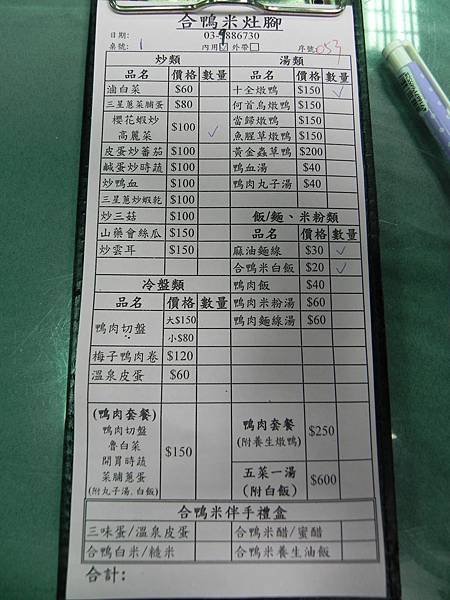 合鴨米灶腳
日期:
03-9886730
桌號: 1 內用☑ 外帶□ 序號: 053
炒類
品名 價格 數量
滷白菜 $60
三星蔥菜脯蛋 $80
櫻花蝦炒
高麗菜 $100 ✓
皮蛋炒蕃茄 $100
鹹蛋炒時蔬 $100
炒鴨血 $100
三星蔥炒蝦乾 $100
炒三菇 $100
山藥會絲瓜 $150
炒雲耳 $150
冷盤類
品名 價格 數量
鴨肉切盤 大$150
小$80
梅子鴨肉卷 $120
溫泉皮蛋 $60
(鴨肉套餐)
鴨肉切盤
魯白菜
開胃時蔬
菜脯蔥蛋
(附丸子湯, 白飯)
$150
湯類
品名 價格 數量
十全燉鴨 $150 ✓
何首烏燉鴨 $150
當歸燉鴨 $150
魚腥草燉鴨 $150
黃金蟲草鴨 $200
鴨血湯 $40
鴨肉丸子湯 $40
飯/麵、米粉類
品名 價格 數量
麻油麵線 $30 ✓
合鴨米白飯 $20 ✓
鴨肉飯 $40
鴨肉米粉湯 $60
鴨肉麵線湯 $60
鴨肉套餐
(附養生燉鴨) $250
五菜一湯
(附白飯) $600
合鴨米伴手禮盒
三味蛋/溫泉皮蛋 合鴨米醋/蜜醋
合鴨白米/糙米 合鴨米養生油飯
合計: